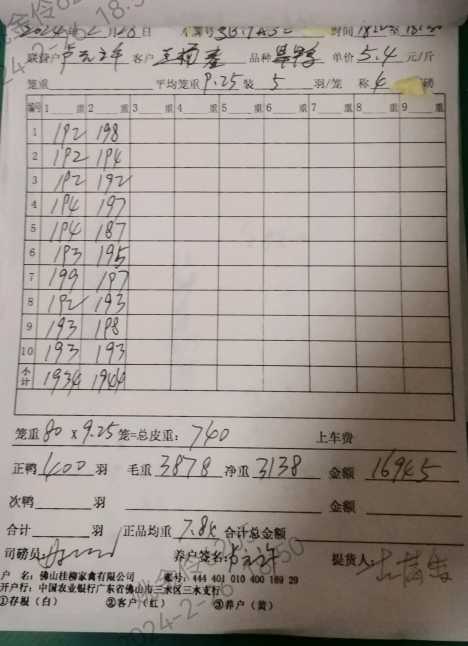 2024年2月16日 车牌号 时间
联养户 卢元许 客户 品种 单价 5.4 元/斤
笼重 平均笼重 9.25 装 5 羽/笼 称 4 磅
编号 1 重 2 重 3 重 4 重 5 重 6 重 7 重 8 重 9 重
1 192 198
2 192 194
3 192 192
4 194 197
5 194 187
6 193 195
7 199 197
8 192 193
9 193 198
10 193 193
小计 1934 1944
笼重 80 x 9.25 笼=总皮重: 740 上车费
正鸭 400 羽 毛重 3878 净重 3138 金额 16945
次鸭 羽 金额
合计 羽 正品均重 7.84 合计总金额
司磅员: 养户签名: 卢元许 提货人:
户 名: 佛山桂柳家禽有限公司 账号: 444 401 010 400 169 29
开户行: 中国农业银行广东省佛山市三水区三水支行
①存根(白) ②客户(红) ③养户(黄)